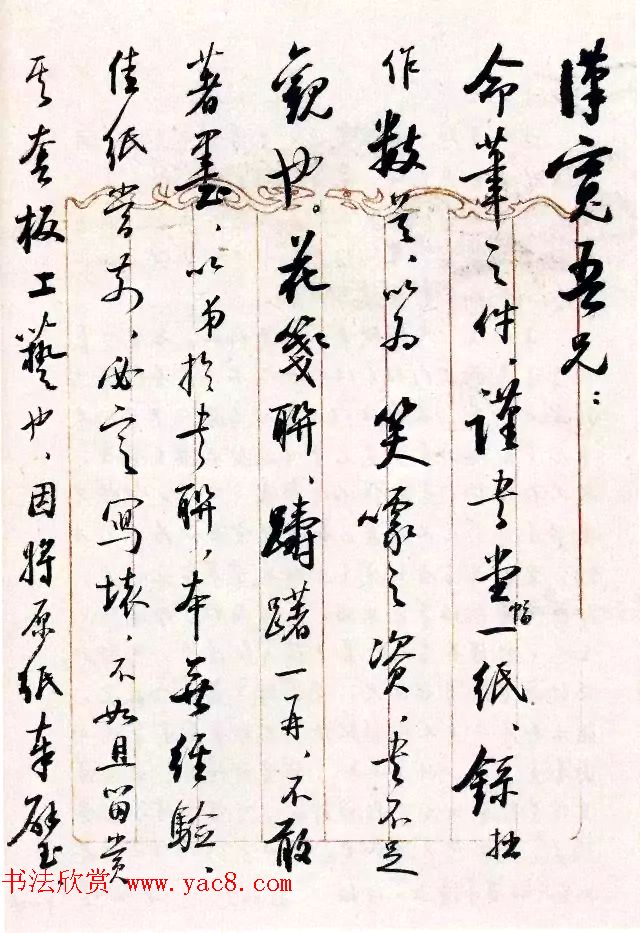 汉宽吾兄：
命笔之件，谨书堂幅一纸、录拙
作数首，以为笑噱之资，书不足
观也。花笺联、踌躇一再，不敢
著墨，以弟于书联，本无经验、
佳纸当前，必定写坏，不如且留赏
其套板工艺也，因将原纸奉璧
书法欣赏 www.yac8.com